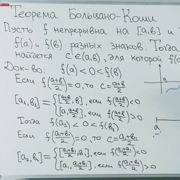 Теорема Больцано-Коши
Пусть f непрерывна на [a,b] и
f(a) и f(b) разных знаков. Тогда
найдется c∈(a,b), для которой f(
Док-во: f(a)<0<f(b)
Если f(a+b/2)=0, то c=a+b/2
[a₁,b₁]={[a+b/2, b], если f(a+b/2)<0
[a, a+b/2], если f(a+b/2)>0
Тогда f(a₁)<0<f(b₁)
Если f(a₁+b₁/2)=0, то c=a₁+b₁/2
[a₂,b₂]={[a₁+b₁/2, b₁], если f(a₁+b₁/2)<0
[a₁, a₁+b₁/2], если f(a₁+b₁/2)>0